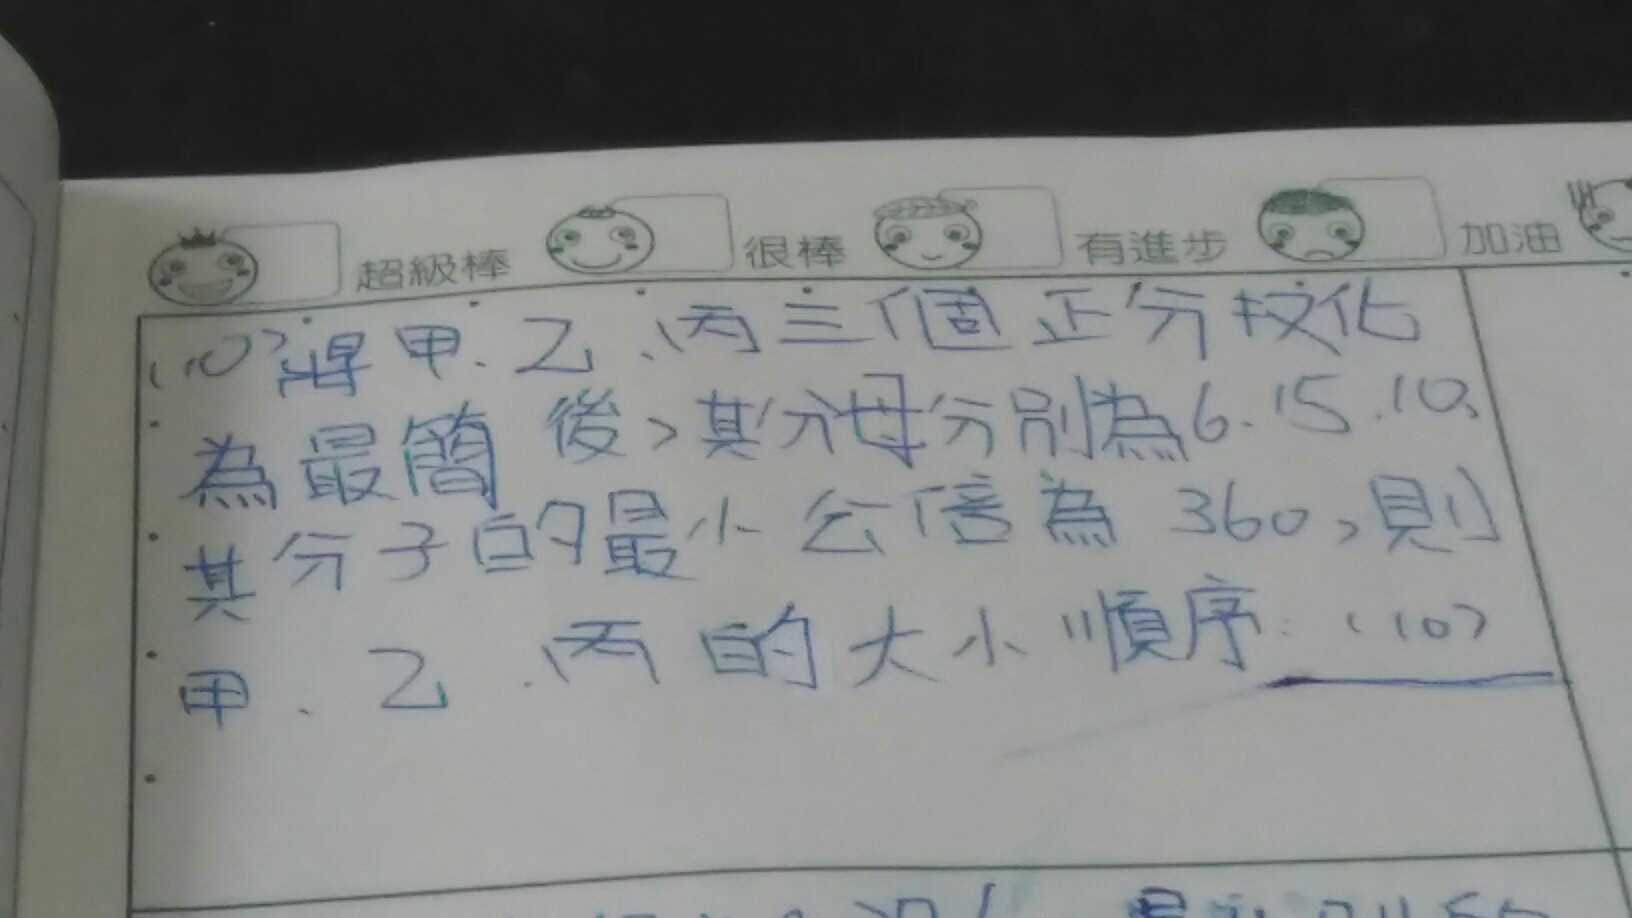 超級棒 很棒 有進步 加油
(10)將甲、乙、丙三個正分数化
為最簡後,其分母分別為6、15、10、
其分子的最小公倍為360,則
甲、乙、丙的大小順序:(10)